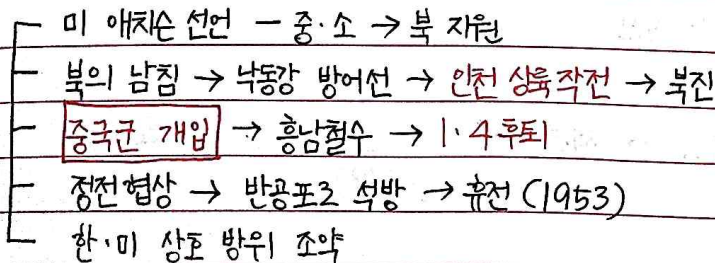 미 애치슨 선언 — 중·소 → 북 지원
북의 남침 → 낙동강 방어선 → 인천 상륙작전 → 북진
중국군 개입 → 흥남철수 → 1·4 후퇴
정전협상 → 반공포로 석방 → 휴전 (1953)
한·미 상호 방위 조약